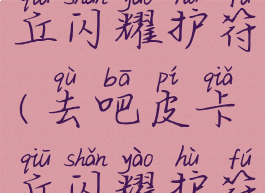 qiū shǎn yào hù fú
丘闪耀护符
qù bā pí qiǎ
(去吧皮卡
qiū shǎn yào hù fú
丘闪耀护符